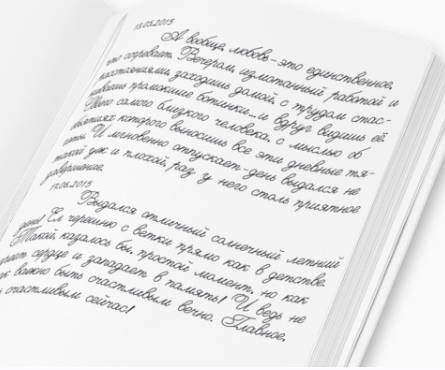 15.05.2015
А вообще, любовь-это единственное,
что согревает. Вечерам, измотанный работой и
расстояниями, заходишь домой, с трудом стас-
киваешь промокшие ботинки...и вдруг видишь её.
Твоего самого близкого человека, с мыслью об
объятиях которого выносишь все эти дневные тя-
готы. И мгновенно отпускает-день выдался не
такой уж и плохой, раз у него столь приятное
завершение.
17.06.2015
Выдался отличный солнечный летний
день! Ел черешню с ветки прямо как в детстве.
Такой, казалось бы, простой момент, но как
сердце и западает в память! И ведь не
важно быть счастливым вечно. Главное,
счастливым сейчас!